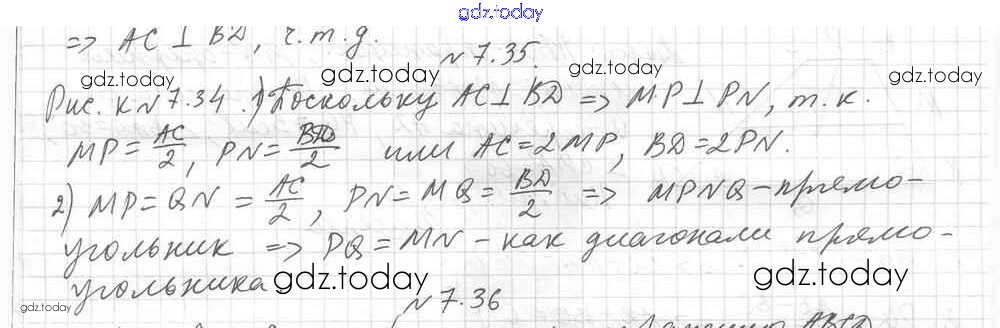 gdz.today
=> AC ⊥ BD, ч.т.д.
N 7.35.
gdz.today gdz.today gdz.today gdz.today
Рис. к N 7.34. 1) Поскольку AC ⊥ BD => MP ⊥ PN, т.к.
MP = AC/2, PN = BD/2 или AC = 2MP, BD = 2PN.
2) MP = QN = AC/2, PN = MQ = BD/2 => MPNQ - прямо-
угольник => PQ = MN - как диагонали прямо-
угольника
gdz.today gdz.today gdz.today
N 7.36
ABCD